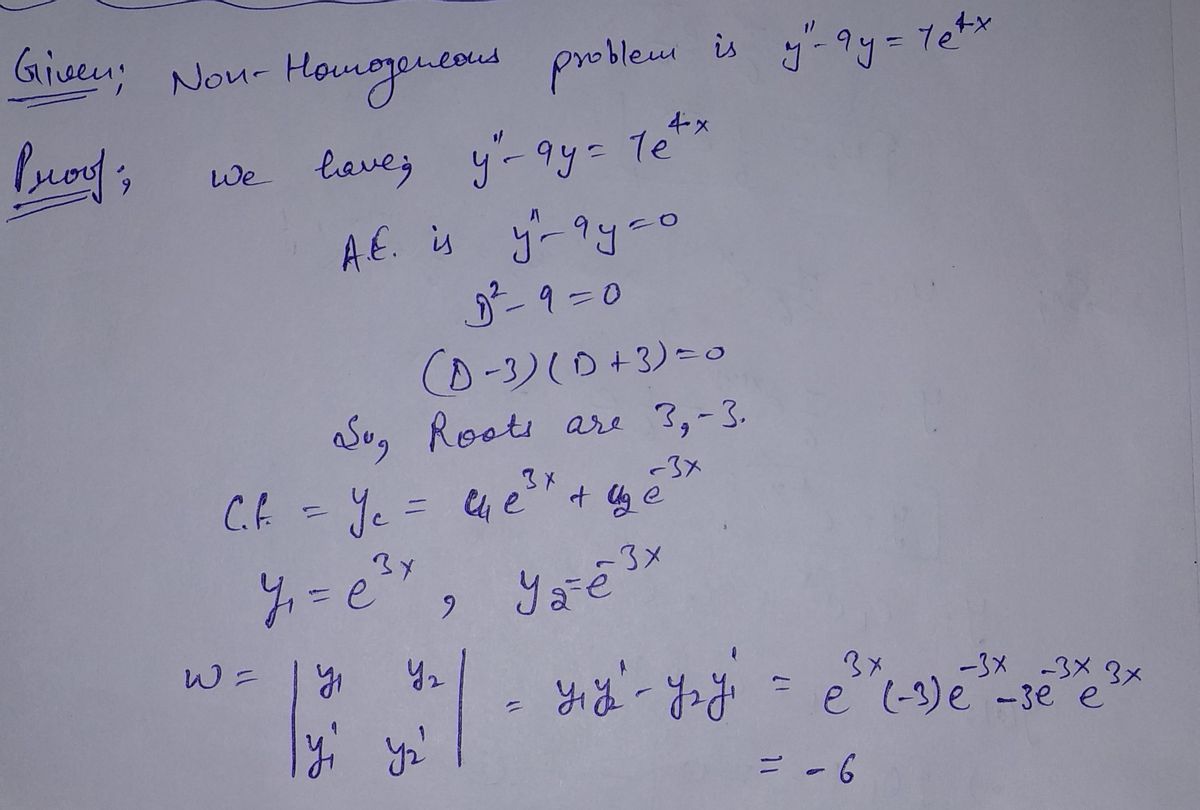 Given; Non-Homogeneous problem is y"-9y = 7e^4x
Proof; we have; y"-9y = 7e^4x
A.E. is y"-9y=0
D²-9=0
(D-3)(D+3)=0
So, Roots are 3,-3.
C.f. = yc = c₁e^3x + c₂e^-3x
y₁ = e^3x, y₂=e^-3x
w = | y₁ y₂ | = y₁y₂' - y₂y₁' = e^3x(-3)e^-3x -3e^-3x e^3x
| y₁' y₂' |
= -6